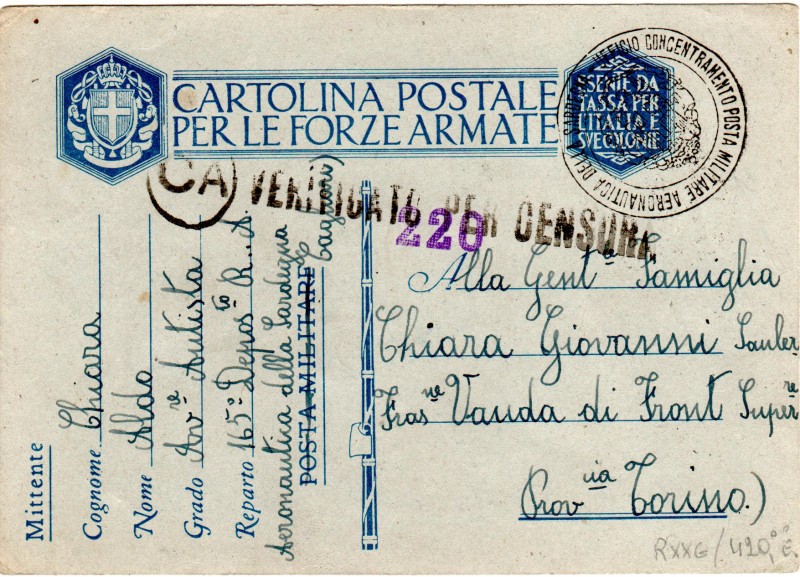 CARTOLINA POSTALE
PER LE FORZE ARMATE
SENTE DA
TASSA PER
L'ITALIA E
SVE COLONIE
UFFICIO CONCENTRAMENTO POSTA MILITARE AERONAUTICA DELLA SARDEGNA
CA VERIFICATO PER CENSURA
220
Mittente
Cognome Chiara
Nome Aldo
Grado Av re Autista
Reparto 165º Depos to R. A.
Aeronautica della Sardegna
POSTA MILITARE
Cagliari)
Alla Gent e Famiglia
Chiara Giovanni
Fras ne Vauda di Front Super re
(Prov ia Torino.)
RXXG/420,